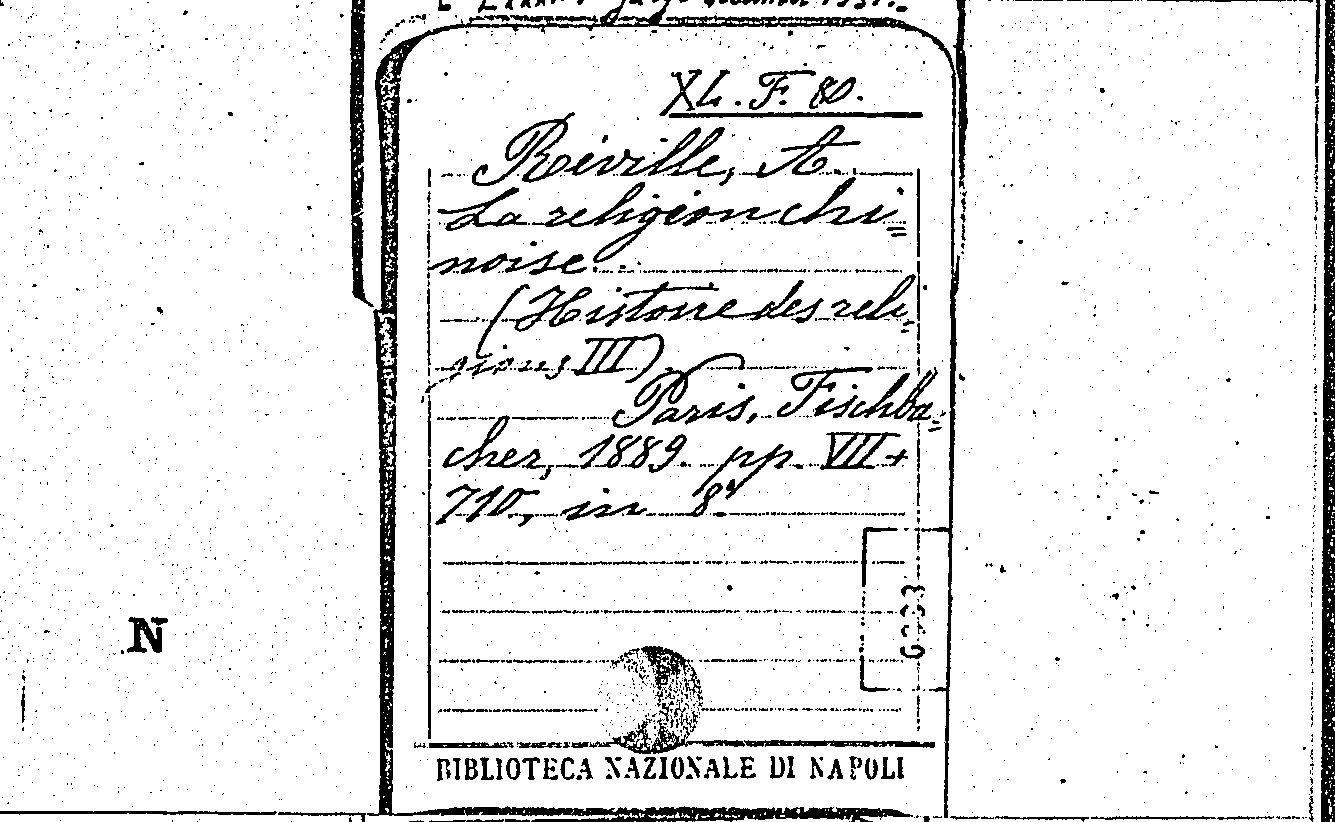 XL. F. 80.
Réville, A.
La religion chi=
noise.
(Histoire des reli=
gions III)
Paris, Fischba=
cher, 1889. pp. VII+
710, in 8°
N
BIBLIOTECA NAZIONALE DI NAPOLI